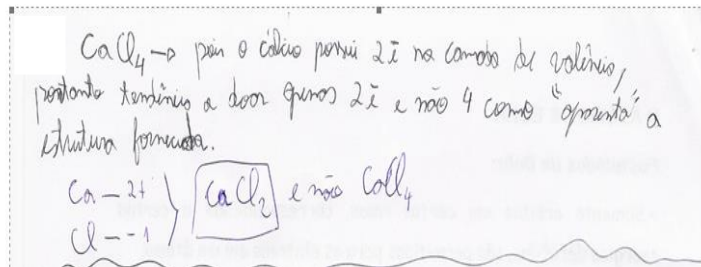 CaCl4 → pois o cálcio possui 2ē na camada de valência,
portanto tendência a doar apenas 2ē e não 4 como "aparenta" a
estrutura fornecida.
Ca — 2+ } CaCl2 e não CaCl4
Cl — -1